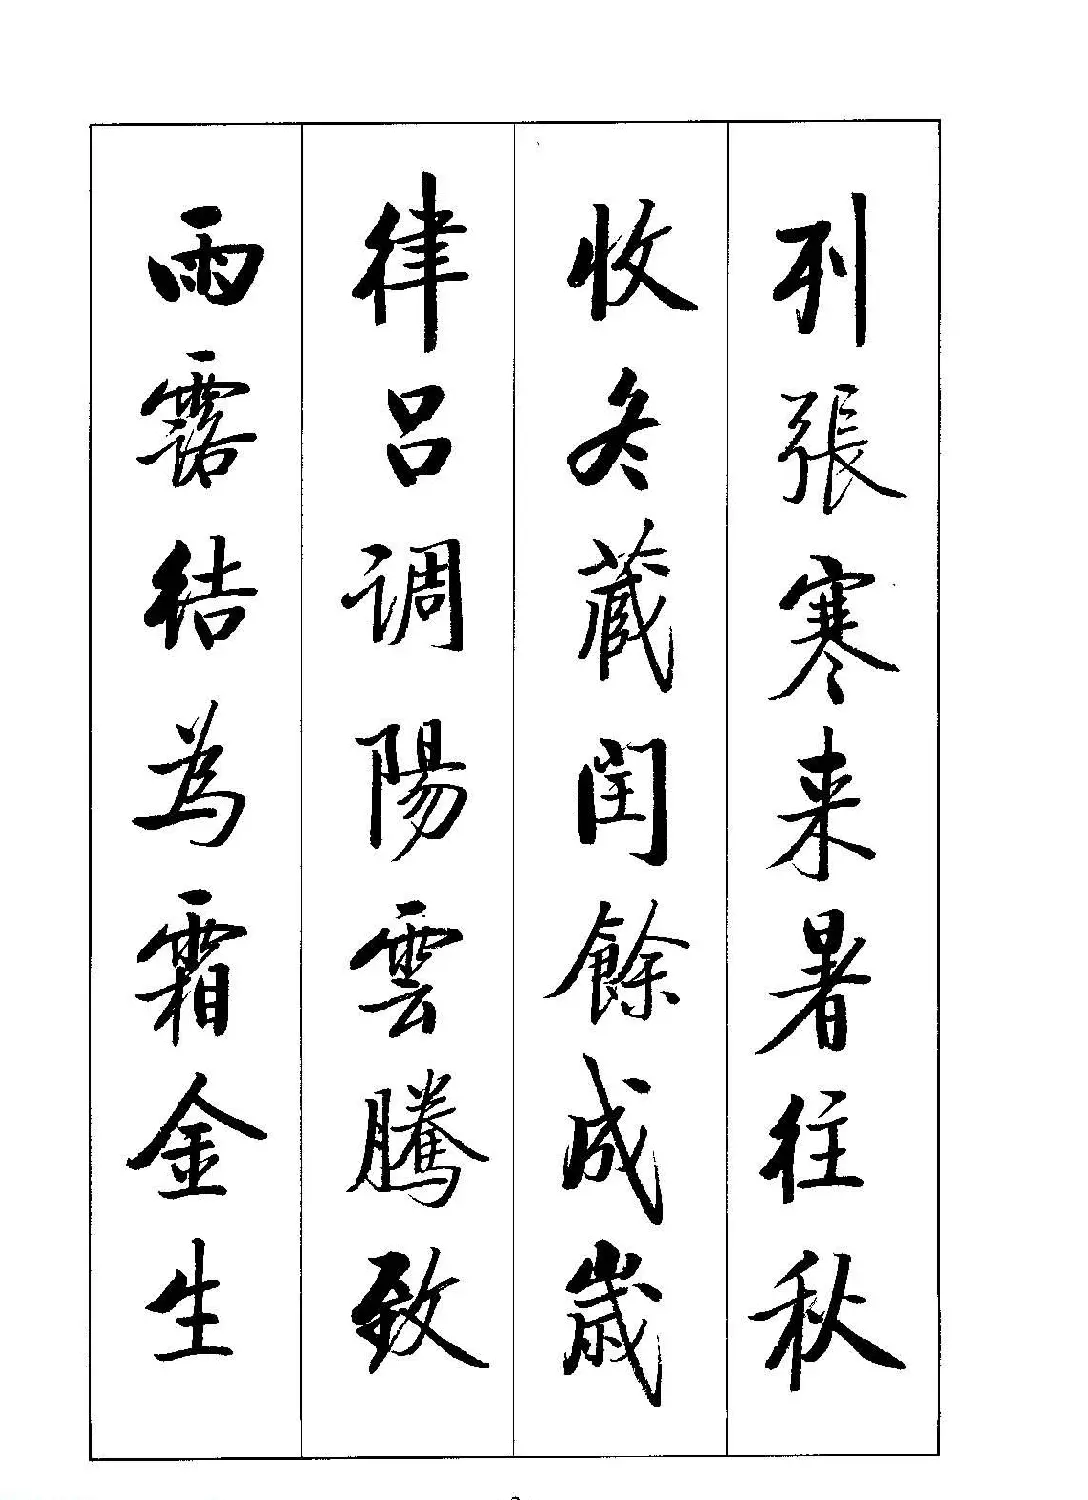 列張寒来暑往秋
收冬蔵閏餘成歳
律吕调陽雲騰致
雨露结為霜金生